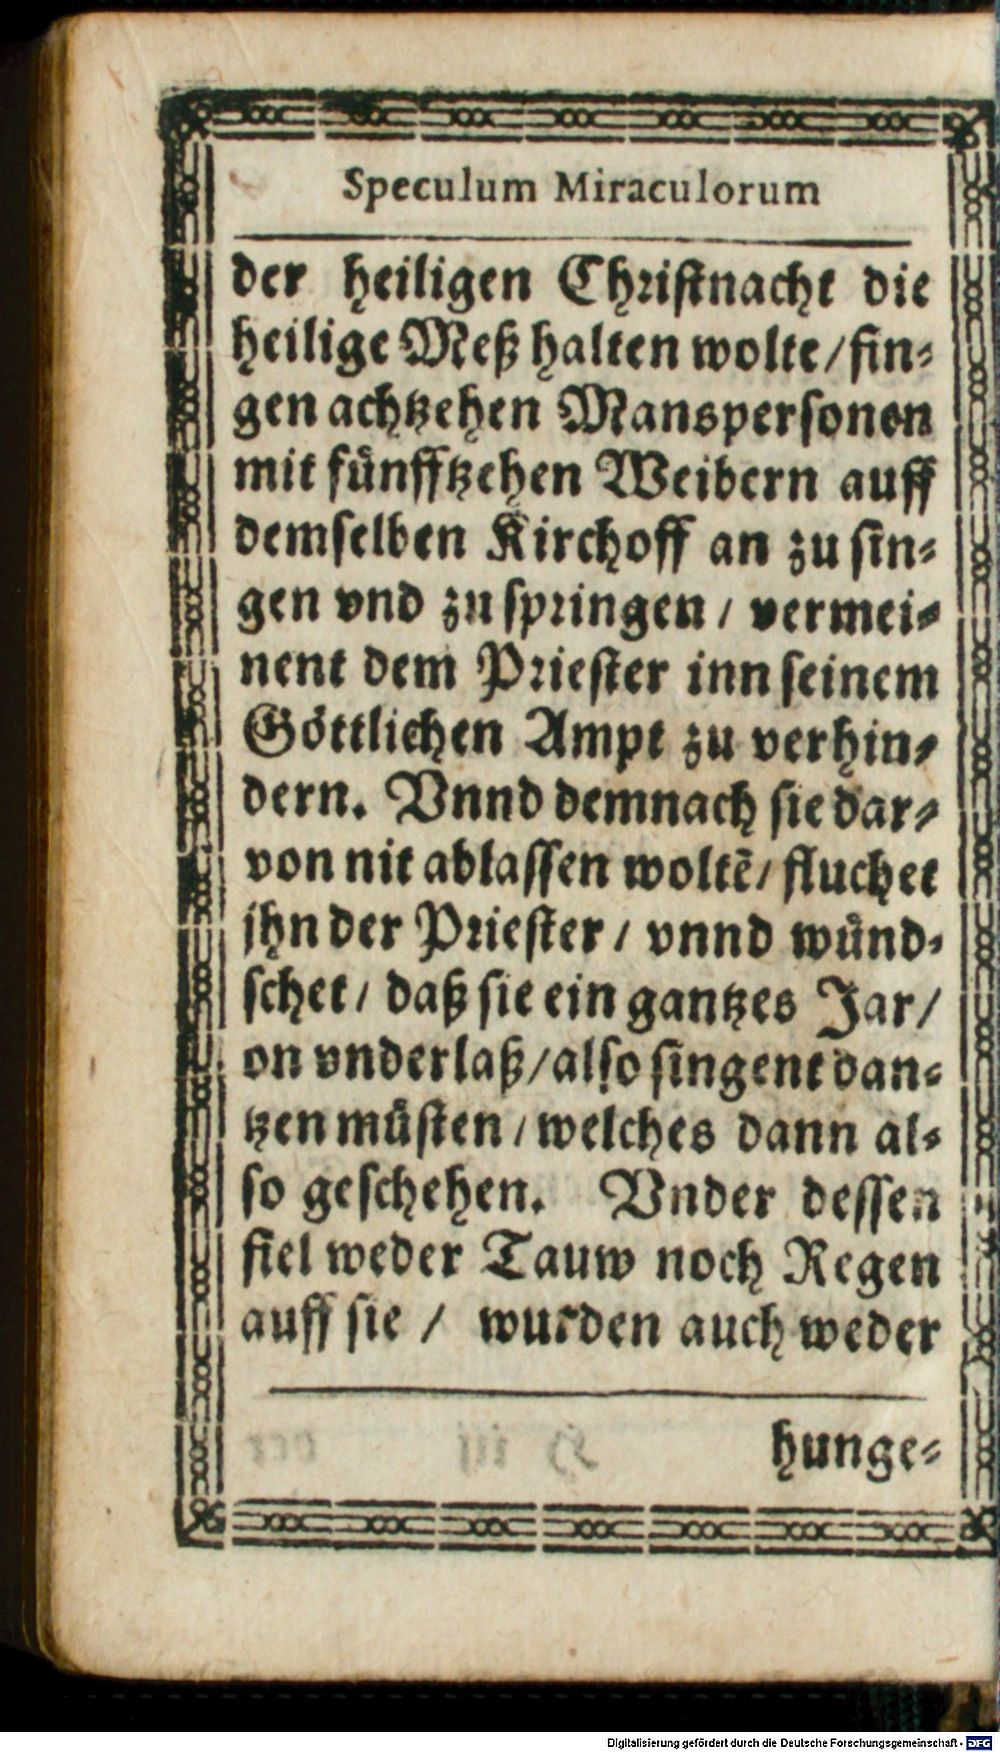 Speculum Miraculorum
der heiligen Christnacht die
heilige Meß halten wolte/ fin-
gen achtzehen Manspersonen
mit fünfftzehen Weibern auff
demselben Kirchoff an zu sin-
gen vnd zu springen / vermei-
nent dem Priester inn seinem
Göttlichen Ampt zu verhin-
dern. Vnnd demnach sie dar-
von nit ablassen woltẽ/ fluchet
jhn der Priester / vnnd wünd-
schet / daß sie ein gantzes Jar/
on vnderlaß/ also singent dan-
tzen müsten / welches dann al-
so geschehen. Vnder dessen
fiel weder Tauw noch Regen
auff sie / wurden auch weder
hunge-
Digitalisierung gefördert durch die Deutsche Forschungsgemeinschaft - DFG